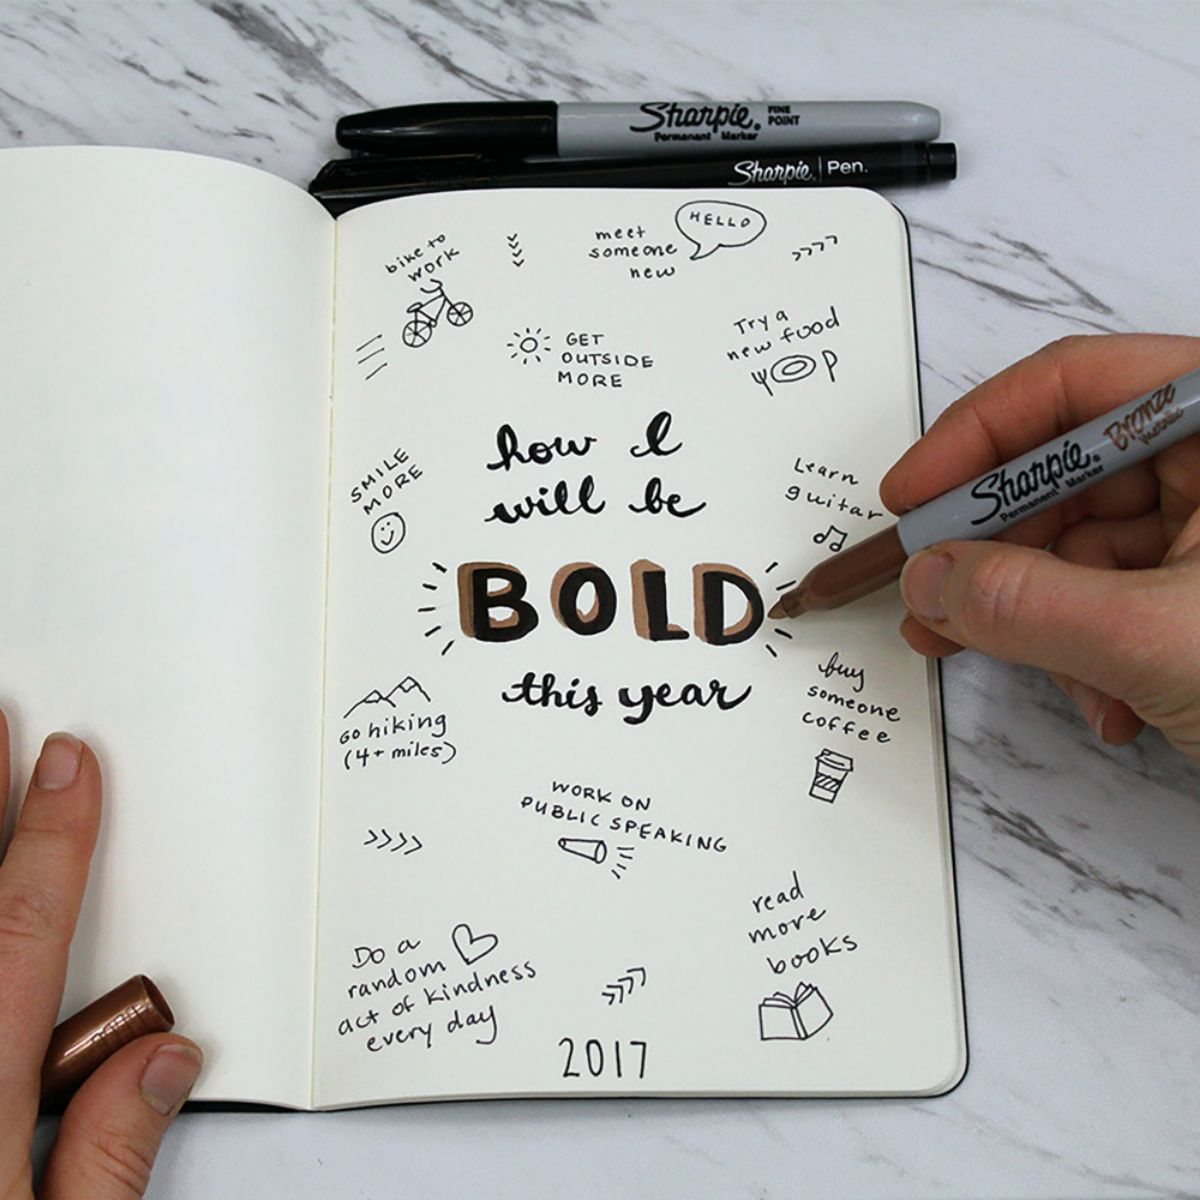 Sharpie. FINE POINT
Permanent Marker
Sharpie. Pen.
bike to
work
meet
someone
new
HELLO
GET
OUTSIDE
MORE
Try a
new food
how I
will be
BOLD
this year
SMILE
MORE
Learn
guitar
Sharpie. Bronze
Permanent Marker Metallic
GO hiking
(4+ miles)
buy
someone
coffee
WORK ON
PUBLIC SPEAKING
read
more
books
Do a
random
act of kindness
every day
2017